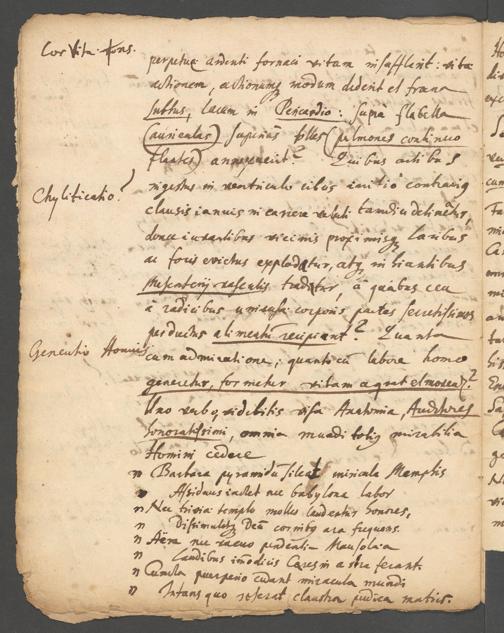 Cor Vitæ fons.
perpetuæ ardenti fornaci vitam insufflerit: vitæ
actionem, actionumq modum dederit et frena
subtus, lacum in Pericardio: supra flabella
(auriculas) superius (pulmones continuo
flantes) annexuerit? Quibus actibus
Chylificatio?
ingestus in ventriculo cibus initio contrariis
clausis ianuis in carcere veluti tamdiu detineatur,
donec in partibus vicinis proximisq laribus
ac foris evictus explodatur, atq in hiantibus
mesenterij vasculis tradatur, à quibus ceu
à radicibus universi corporis partes secretissimos
perductus alimentum recipiant? Quanta
Generatio Hominis
cum admiratione; quantoq cum labore homo
generetur, formetur vitam agat et moveat?
Uno verbo, videbitis visa Anatomia, Auditores
honoratissimi, omnia mundi totiq mirabilia
Homini cedere
Barbara pyramidum sileat miracula Memphis
Assiduus iactet nec babylona labor
Nec triviæ templo molles laudentur honores,
Dissimuletq Deum cornibus ara frequens.
Aëre nec vacuo pendentia Mausolæa
Laudibus imodicis Cares in astra ferant.
Cuncta puerperio cedant miracula mundi
Infans quo reserat claustra pudica matris.